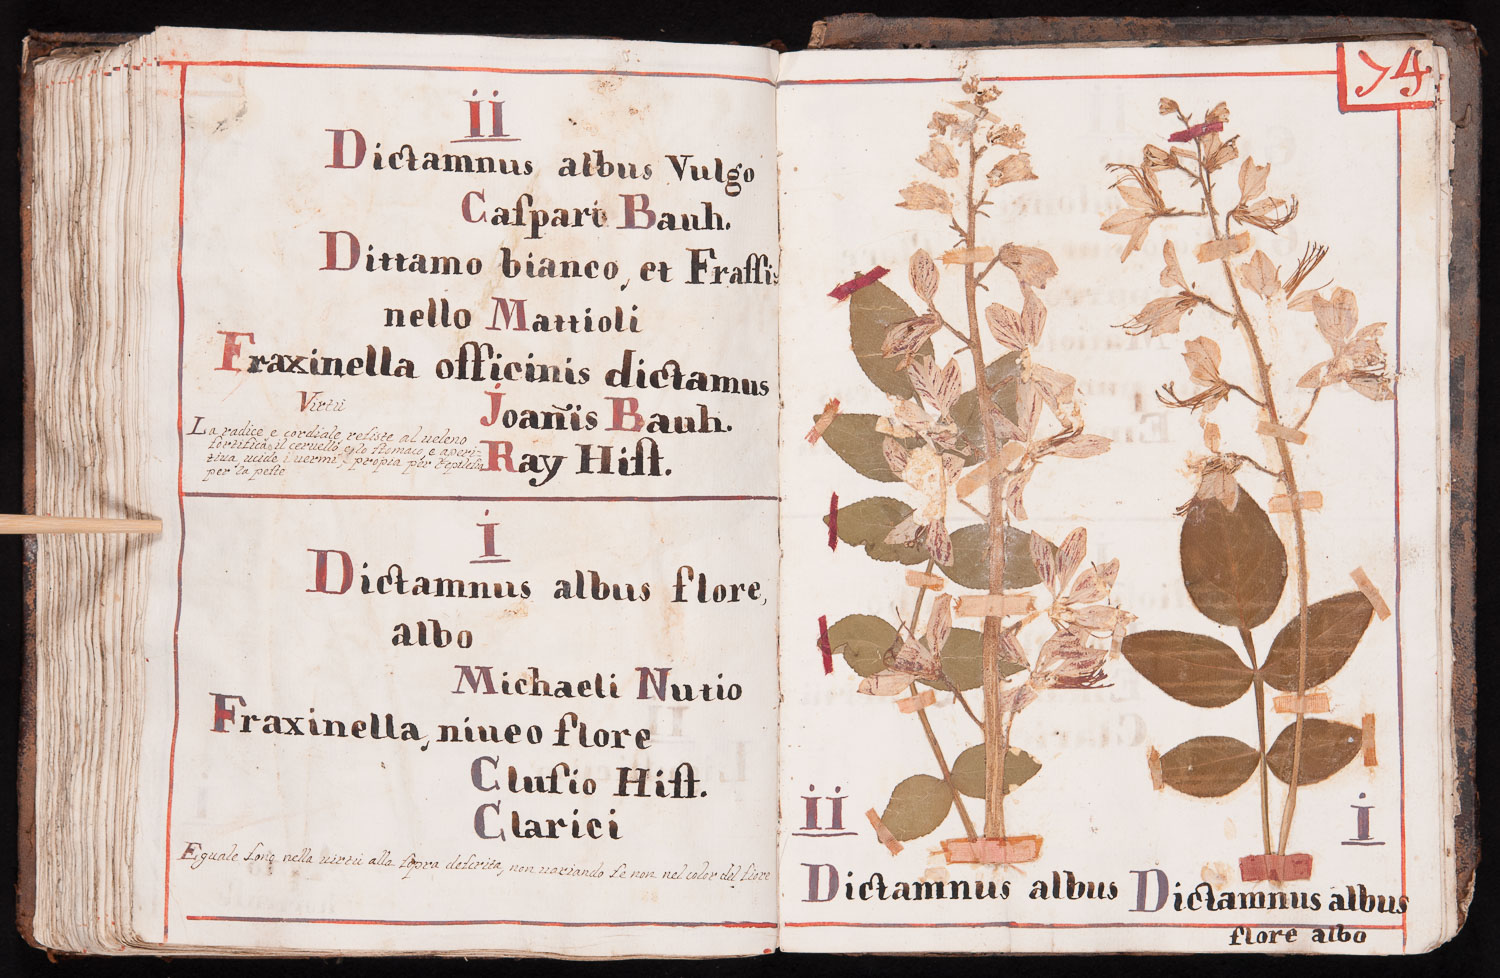 ii
Dictamnus albus Vulgo
Caſpari Bauh.
Dittamo bianco, et Fraſſi
nello Mattioli
Fraxinella officinis dictamus
Joanis Bauh.
Ray Hiſt.
Virtù
La radice e cordiale reſiste al ueleno
fortifica il ceruello, e lo ſtomaco, e aperi-
tiua, ucide i uermi, e propia per
per la peſte
i
Dictamnus albus flore,
albo
Michaeli Nutio
Fraxinella, niueo flore
Cluſio Hiſt.
Clarici
Eguale ſono nella uirtù alla ſopra deſcrita, non uariando ſe non nel color del fiore
74
ii
Dictamnus albus
i
Dictamnus albus
flore albo